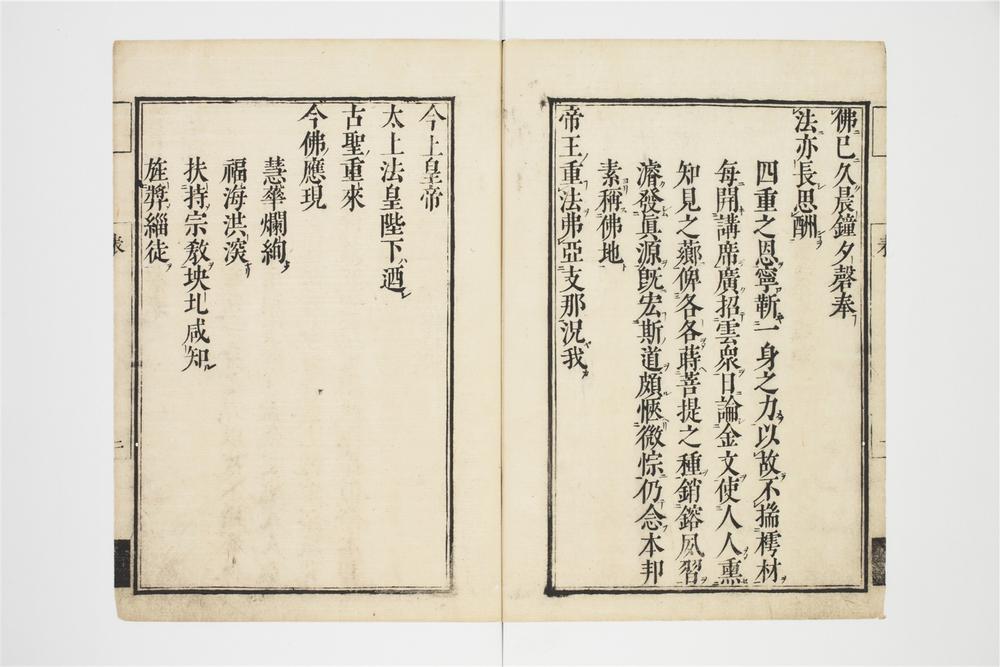 佛已久晨鐘夕磬奉
法亦長思酬
四重之恩寧靳一身之力以故不揣樗材
每開講席廣招雲衆日論金文使人人熏
知見之薌俾各各蒔菩提之種銷鎔夙習
濬發眞源既宏斯道頗愜微悰仍念本邦
帝王重法弗亞支那況我
素稱佛地
今上皇帝
太上法皇陛下迺
古聖重來
今佛應現
慧華爛絢
福海洪深
扶持宗教坱圠咸知
旌獎緇徒
表
二